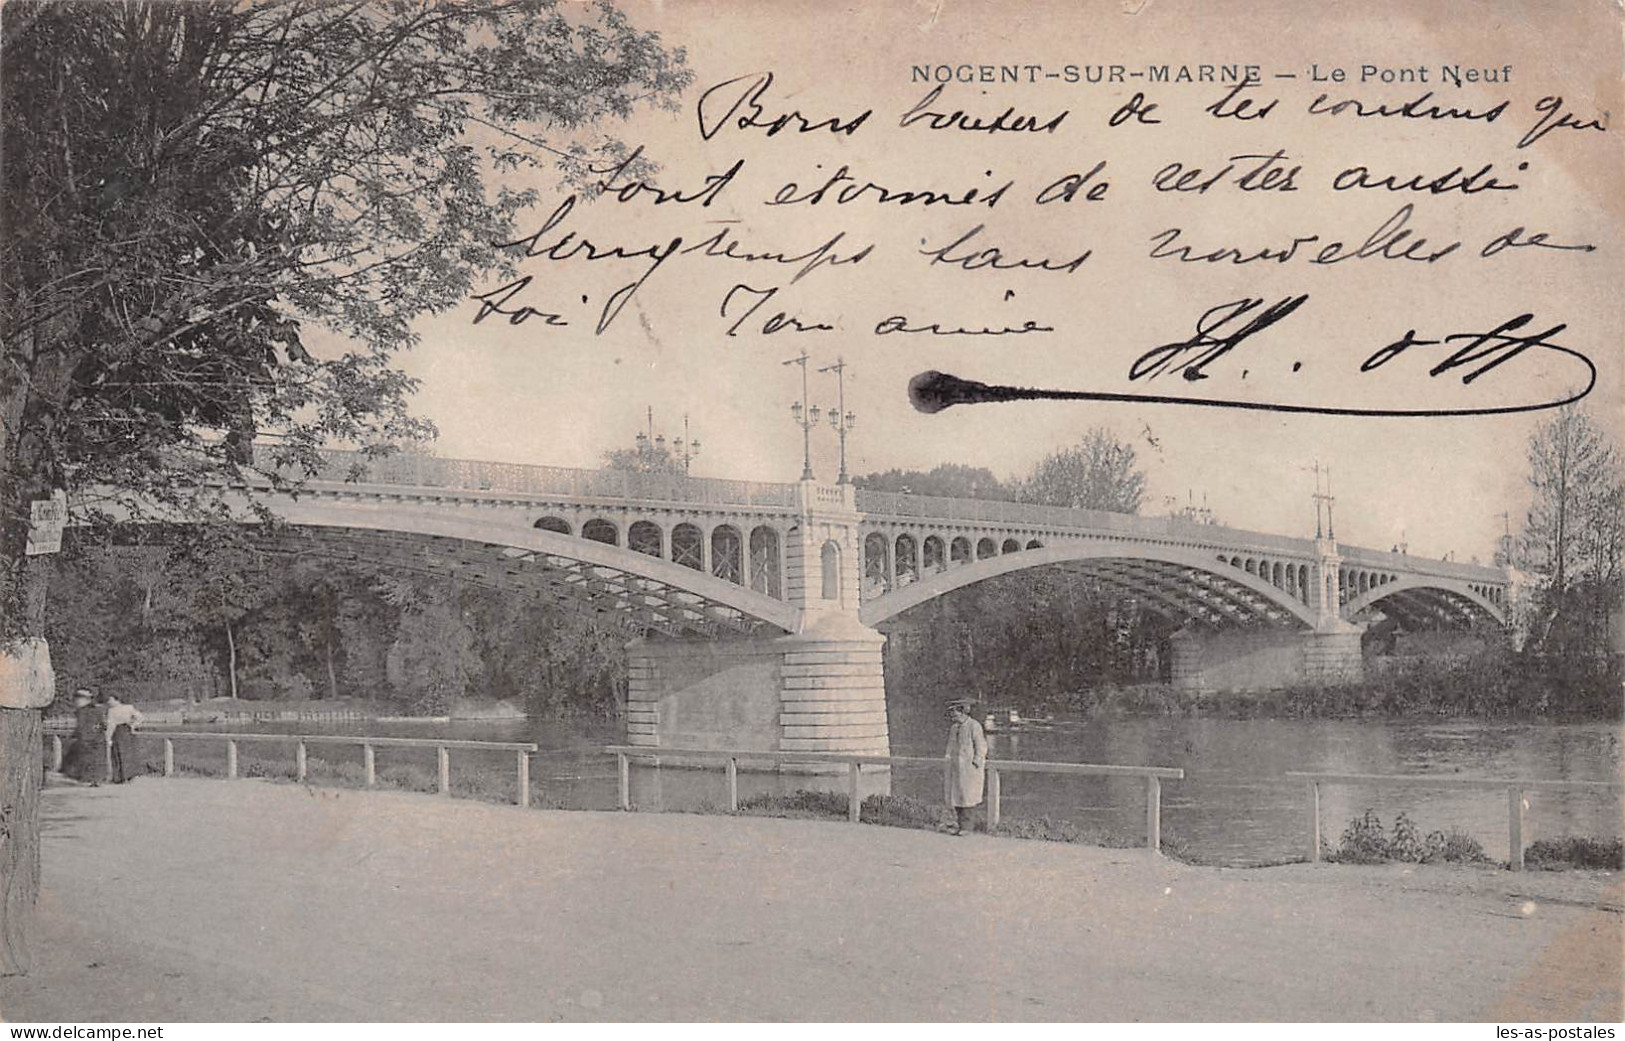 NOGENT-SUR-MARNE — Le Pont Neuf
Bons baisers de tes cousins qui
sont étonnés de rester aussi
longtemps sans nouvelles de
toi Ton amie H.
www.delcampe.net
les-as-postales